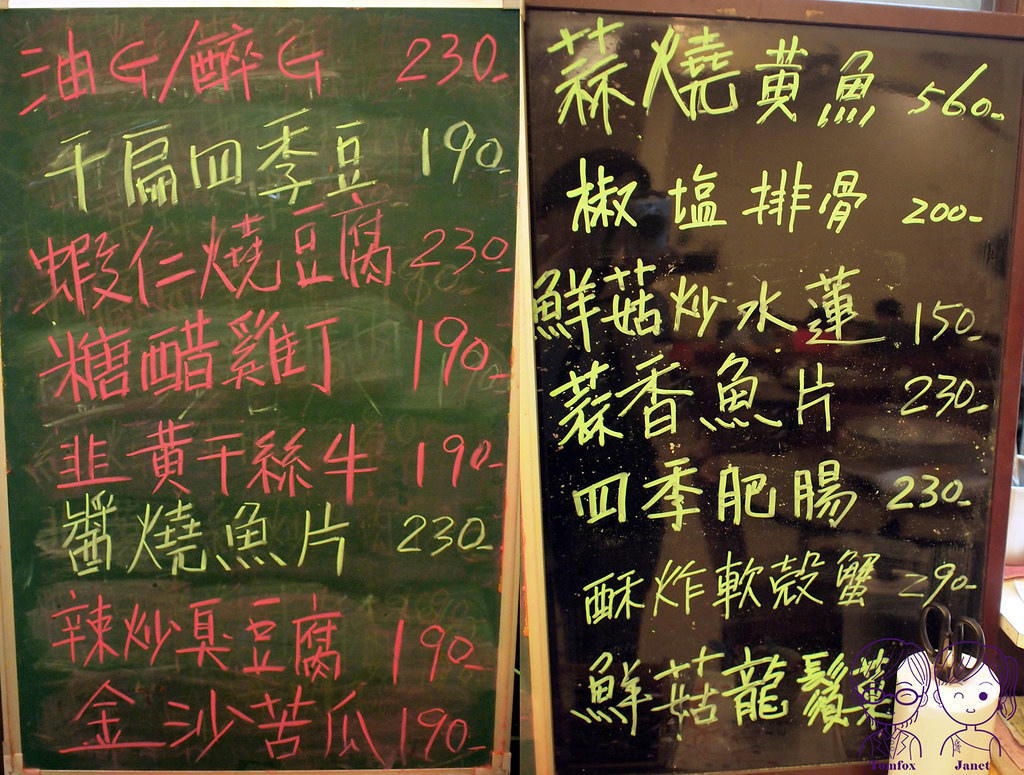 油G/醉G 230-
干扁四季豆 190-
蝦仁燒豆腐 230-
糖醋雞丁 190-
韭黄干絲牛 190-
醬燒魚片 230-
辣炒臭豆腐 190-
金沙苦瓜 190-
蒜燒黄魚 560-
椒塩排骨 200-
鮮菇炒水蓮 150-
蒜香魚片 230-
四季肥腸 230-
酥炸軟殼蟹 290-
鮮菇龍鬚菜
Tomfox Janet